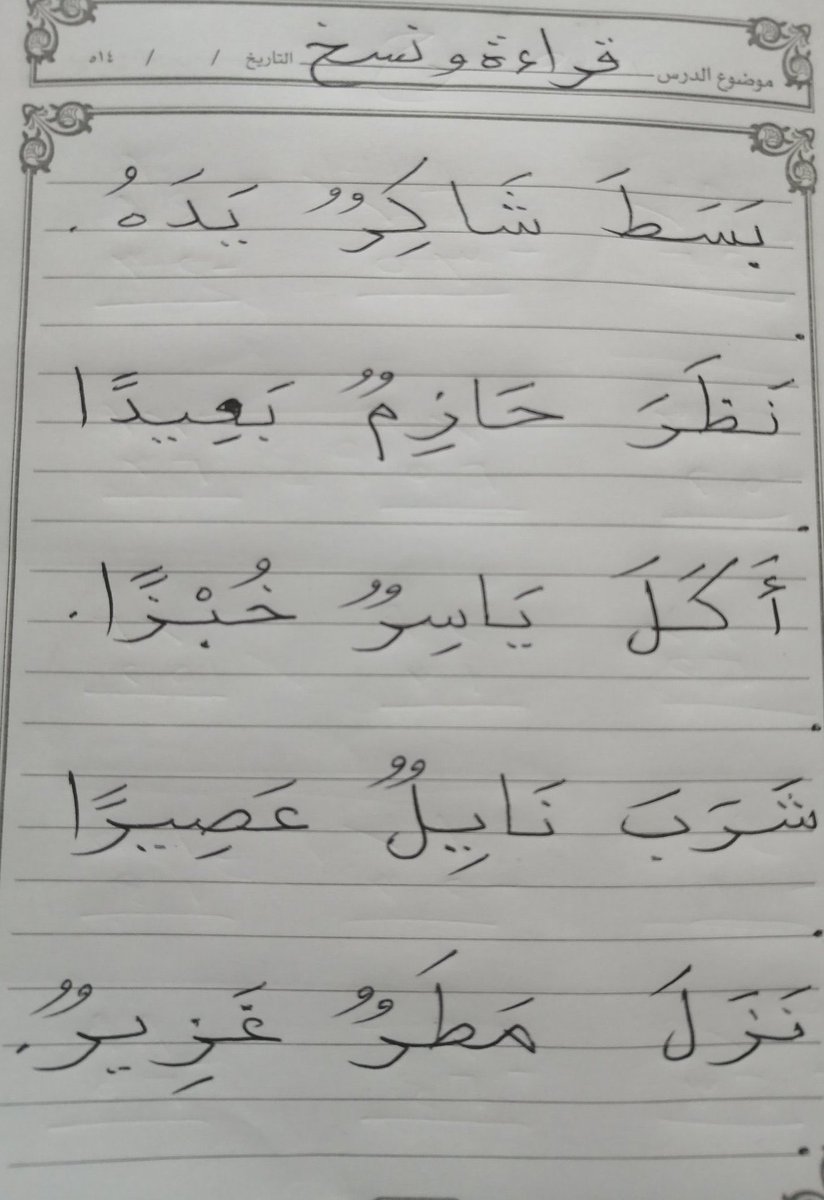 موضوع الدرس قراءة و نسخ التاريخ / / ١٤هـ
بَسَطَ شَاكِرٌ يَدَهُ .
نَظَرَ حَازِمٌ بَعِيدًا
.
أَكَلَ يَاسِرٌ خُبْزًا .
.
شَرَبَ نَابِيلٌ عَصِيرًا
.
نَزَلَ مَطَرٌ غَزِيرٌ .
.